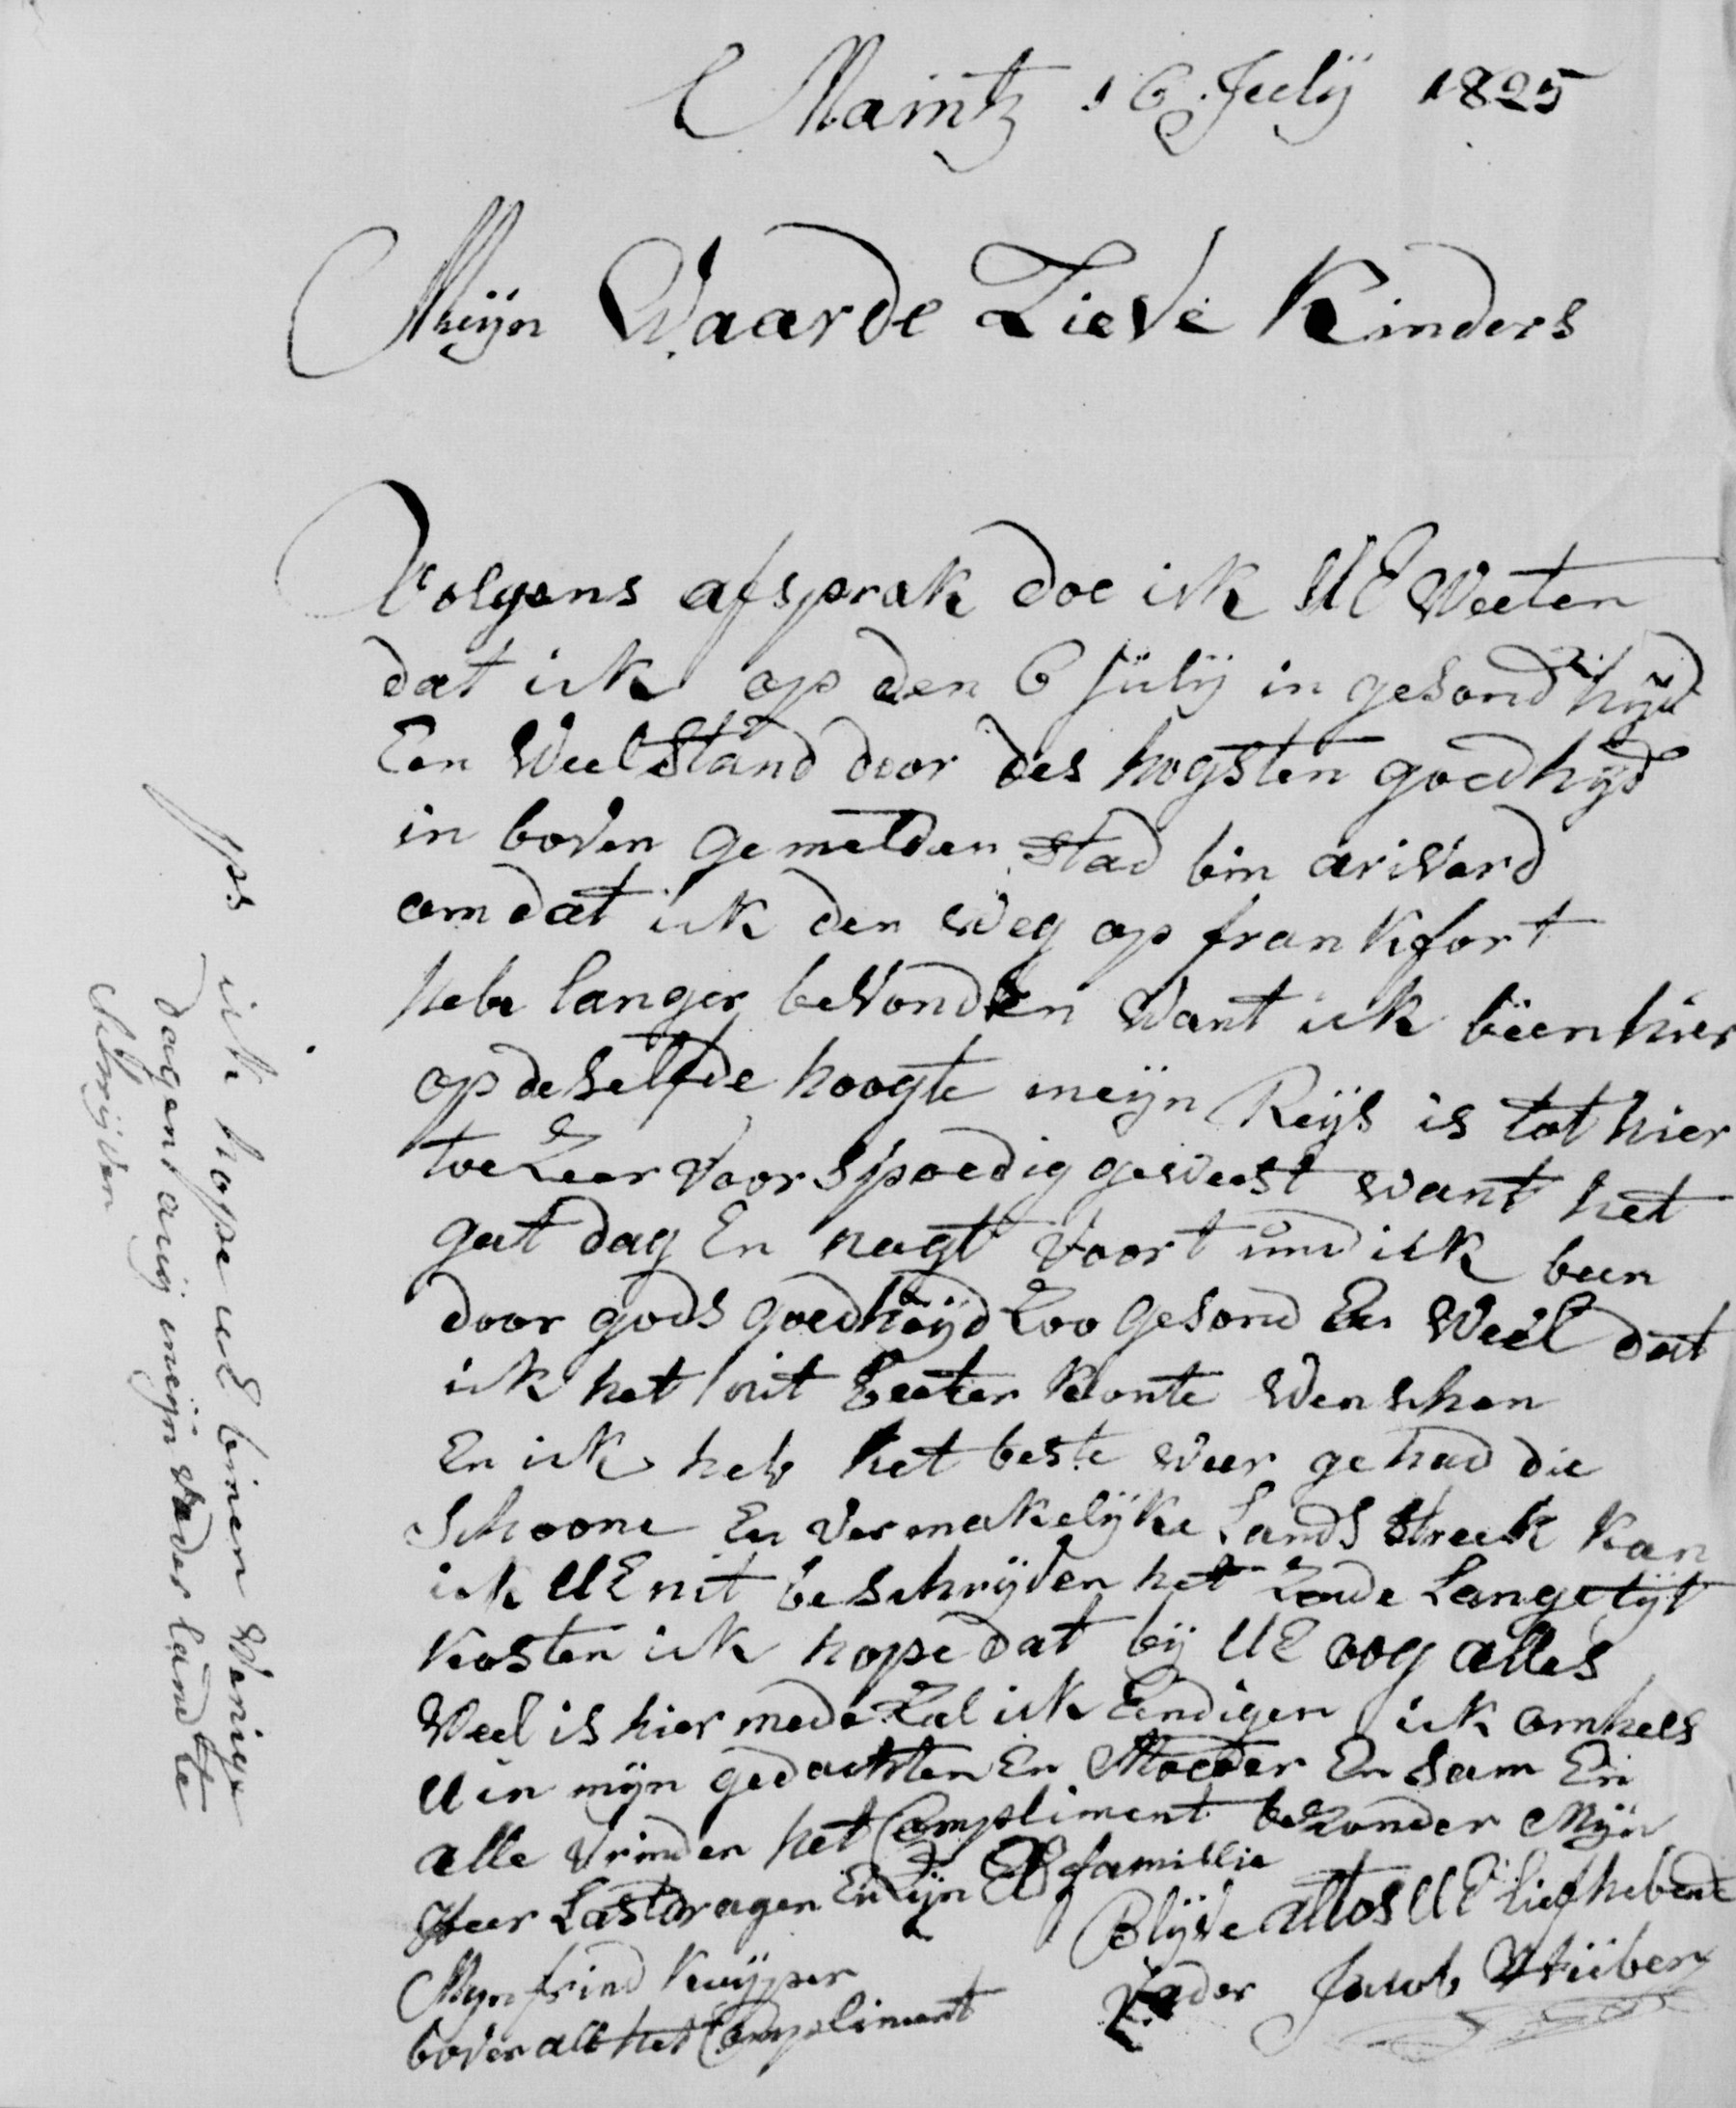 Maintz 16 Julij 1825
Meijn Waarde Lieve Kinders
Volgens afsprak doe ick UE Weeten
dat ick op den 6 Julij in gesondhijd
Een Weelstand door des hogsten goedhijd
in boven gemelden stad bin ariverd
om dat ick den Weg op frankfort
hebe langer bevonden Want ick bëen hier
op de selfde hoogte meijn Reijs is tot hier
toe Zeer Voorspoedig geweest want het
gat dag En nagt Voort und ick been
door gods goedheijd Zoo gesond En Weel dat
ick het nit beeter konte Wenschen
En ick heb het beste weer gehad die
Schoone En vermakelijke Landsstreek kan
ick UE nit beschrijven het Zoude Langetijt
kosten ick hope dat bij UE oog alles
Weel is hier mede Zal ick Eindigen ick omhels
U in mijn gedachten En Moeder En Sam En
alle Vrinden het Compliment bezonder Mijn
Heer Lastdragen En Zijn familie
Blijve altos UE Liefhebend
Mijn frind Kuijper
Vader Jacob
boven all het Compliment
ps ick hope UE binen Wenige
dagen auij meijn vaderland te
schrijven